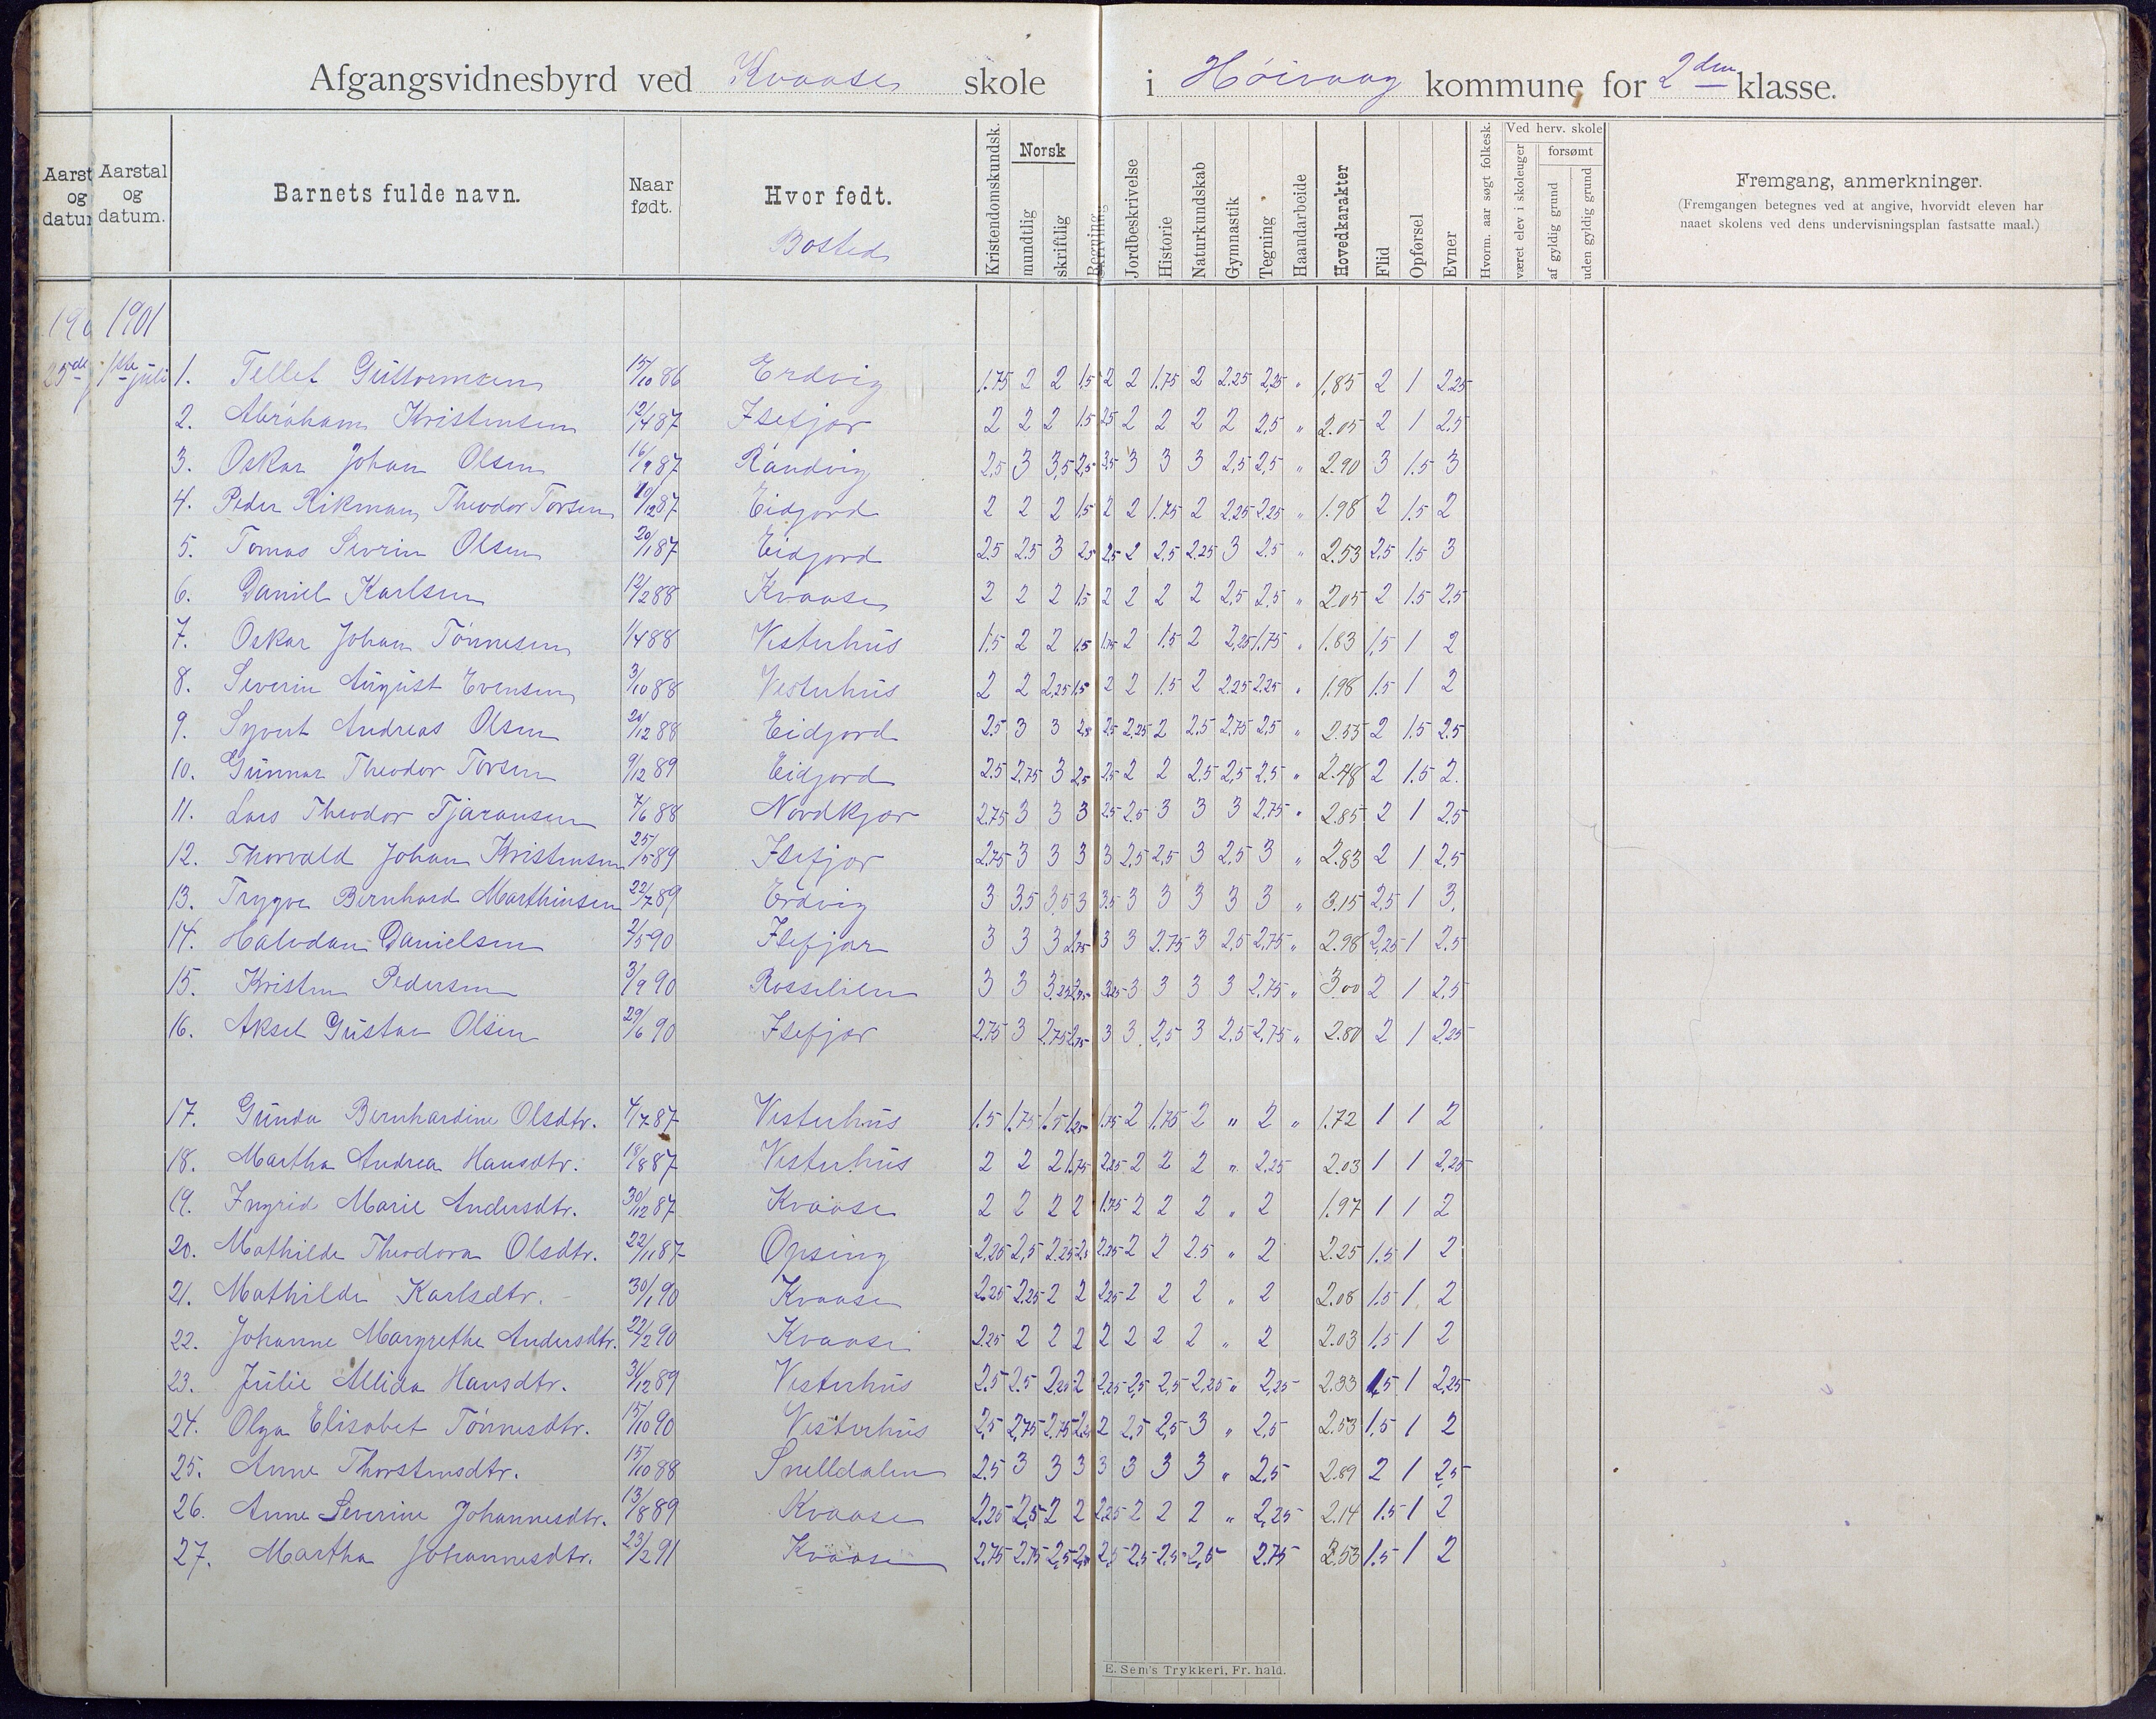 Afgangsvidnesbyrd ved Kvaase skole i Høivaag kommune for 2den klasse.
Aarst og datum
Aarstal og datum.
Barnets fulde navn.
Naar født.
Hvor født.
Bosted
Kristendomskundsk.
Norsk
mundtlig
skriftlig
Regning
Jordbeskrivelse
Historie
Naturkundskab
Gymnastik
Tegning
Haandarbeide
Hovedkarakter
Flid
Opførsel
Evner
Hvorm. aar søgt folkesk.
Ved herv. skole
været elev i skoleuger
forsømt
af gyldig grund
uden gyldig grund
Fremgang, anmerkninger.
(Fremgangen betegnes ved at angive, hvorvidt eleven har
naaet skolens ved dens undervisningsplan fastsatte maal.)
190 1901
25de 1ste juli
1. Tellef Guttormsen 15/10 86 Erdvig 1.75 2 2 1.5 2 2 1.75 2 2.25 2,25 " 1.85 2 1 2.25
2. Abraham Kristensen 12/1 87 Isefjær 2 2 2 1.5 2.5 2 2 2 2 2,5 " 2.05 2 1 2.5
3. Oskar Johan Olsen 16/9 87 Randvig 2,5 3 3,5 2,5 3.5 3 3 3 2,5 2,5 " 2.90 3 1.5 3
4. Peder Rikman Theodor Torsen 10/12 87 Eidjord 2 2 2 1.5 2 2 1.75 2 2.25 2.25 " 1.98 2 1.5 2
5. Tomas Sevrin Olsen 20/1 87 Eidjord 2.5 2.5 3 2.5 2,5 2 2,5 2.25 3 2.5 " 2.53 2,5 1.5 3
6. Daniel Karlsen 12/2 88 Kvaase 2 2 2 1.5 2 2 2 2 2,5 2,5 " 2.05 2 1.5 2,5
7. Oskar Johan Tønnesen 1/4 88 Vesterhus 1.5 2 2 1.5 1.75 2 1.5 2 2,25 1.75 " 1.83 1,5 1 2
8. Severin August Evensen 3/10 88 Vesterhus 2 2 2,25 1.5 2 2 1.5 2 2.25 2.25 " 1.98 1.5 1 2
9. Syvert Andreas Olsen 20/12 88 Eidjord 2.5 3 3 2.5 2.5 2.25 2 2.5 2.75 2.5 " 2.55 2 1.5 2.5
10. Gunnar Theodor Torsen 9/12 89 Eidjord 2.5 2.75 3 2.5 2.5 2 2 2.5 2,5 2,5 " 2.48 2 1.5 2.
11. Lars Theodor Tjøransen 7/6 88 Nordkjær 2.75 3 3 3 2.5 2.5 3 3 3 2,75 " 2.85 2 1 2,5
12. Thorvald Johan Kristensen 25/5 89 Isefjær 2.75 3 3 3 3 2,5 2,5 3 2,5 3 " 2.83 2 1 2,5
13. Trygve Bernhard Marthinsen 22/7 89 Erdvig 3 3.5 3.5 3 3.5 3 3 3 3 3 " 3.15 2.5 1 3.
14. Halvdan Danielsen 2/5 90 Isefjær 3 3 3 2.75 3 3 2.75 3 2,5 2,75 " 2.98 2,25 1 2.5
15. Kristen Pedersen 3/9 90 Rosselien 3 3 3.25 2.75 3.25 3 3 3 3 2.75 " 3.00 2 1 2,5
16. Aksel Gustav Olsen 29/6 90 Isefjær 2.75 3 2.75 2.75 3 3 2,5 3 2.5 2.75 " 2.80 2 1 2.25
17. Gunda Bernhardine Olsdtr. 4/7 87 Vesterhus 1.5 1.75 1.5 1.25 1.75 2 1.75 2 " 2 " 1.72 1 1 2
18. Martha Andrea Hansdtr. 18/8 87 Vesterhus 2 2 2 1.75 2.25 2 2 2 " 2,25 2.03 1 1 2,25
19. Ingrid Marie Andersdtr. 30/12 87 Kvaase 2 2 2 2 1.75 2 2 2 " 2 1.97 1 1 2
20. Mathilde Theodora Olsdtr. 22/11 87 Opsing 2,25 2,5 2.25 2.5 2.25 2 2 2.5 " 2 2.25 1.5 1 2
21. Mathilde Karlsdtr. 30/1 90 Kvaase 2.25 2.25 2 2 2.25 2 2 2 " 2 2.08 1.5 1 2
22. Johanne Margrethe Andersdtr. 22/2 90 Kvaase 2.25 2 2 2 2 2 2 2 " 2 2.03 1.5 1 2
23. Julie Allida Hansdtr. 31/12 89 Vesterhus 2.5 2.5 2.25 2 2.25 2,5 2,5 2,25 " 2,25 2.33 1,5 1 2,25
24. Olga Elisabet Tønnesdtr. 15/10 90 Vesterhus 2,5 2,75 2.75 2.25 2 2,5 2,5 3 " 2,5 2.53 1,5 1 2
25. Anne Thorstensdtr. 15/10 88 Snelldalen 2.5 3 3 3 3 3 3 3 " 2.5 2.89 2 1 2,5
26. Anne Severine Johannesdtr. 13/8 89 Kvaase 2.25 2,5 2 2 2.25 2 2 2 " 2,25 2.14 1.5 1 2
27. Martha Johannesdtr. 23/2 91 Kvaase 2.75 2.75 2,5 2,5 2,5 2,5 2,5 2,5 2.75 2.53 1.5 1 2
E. Sem's Trykkeri, Fr. hald.